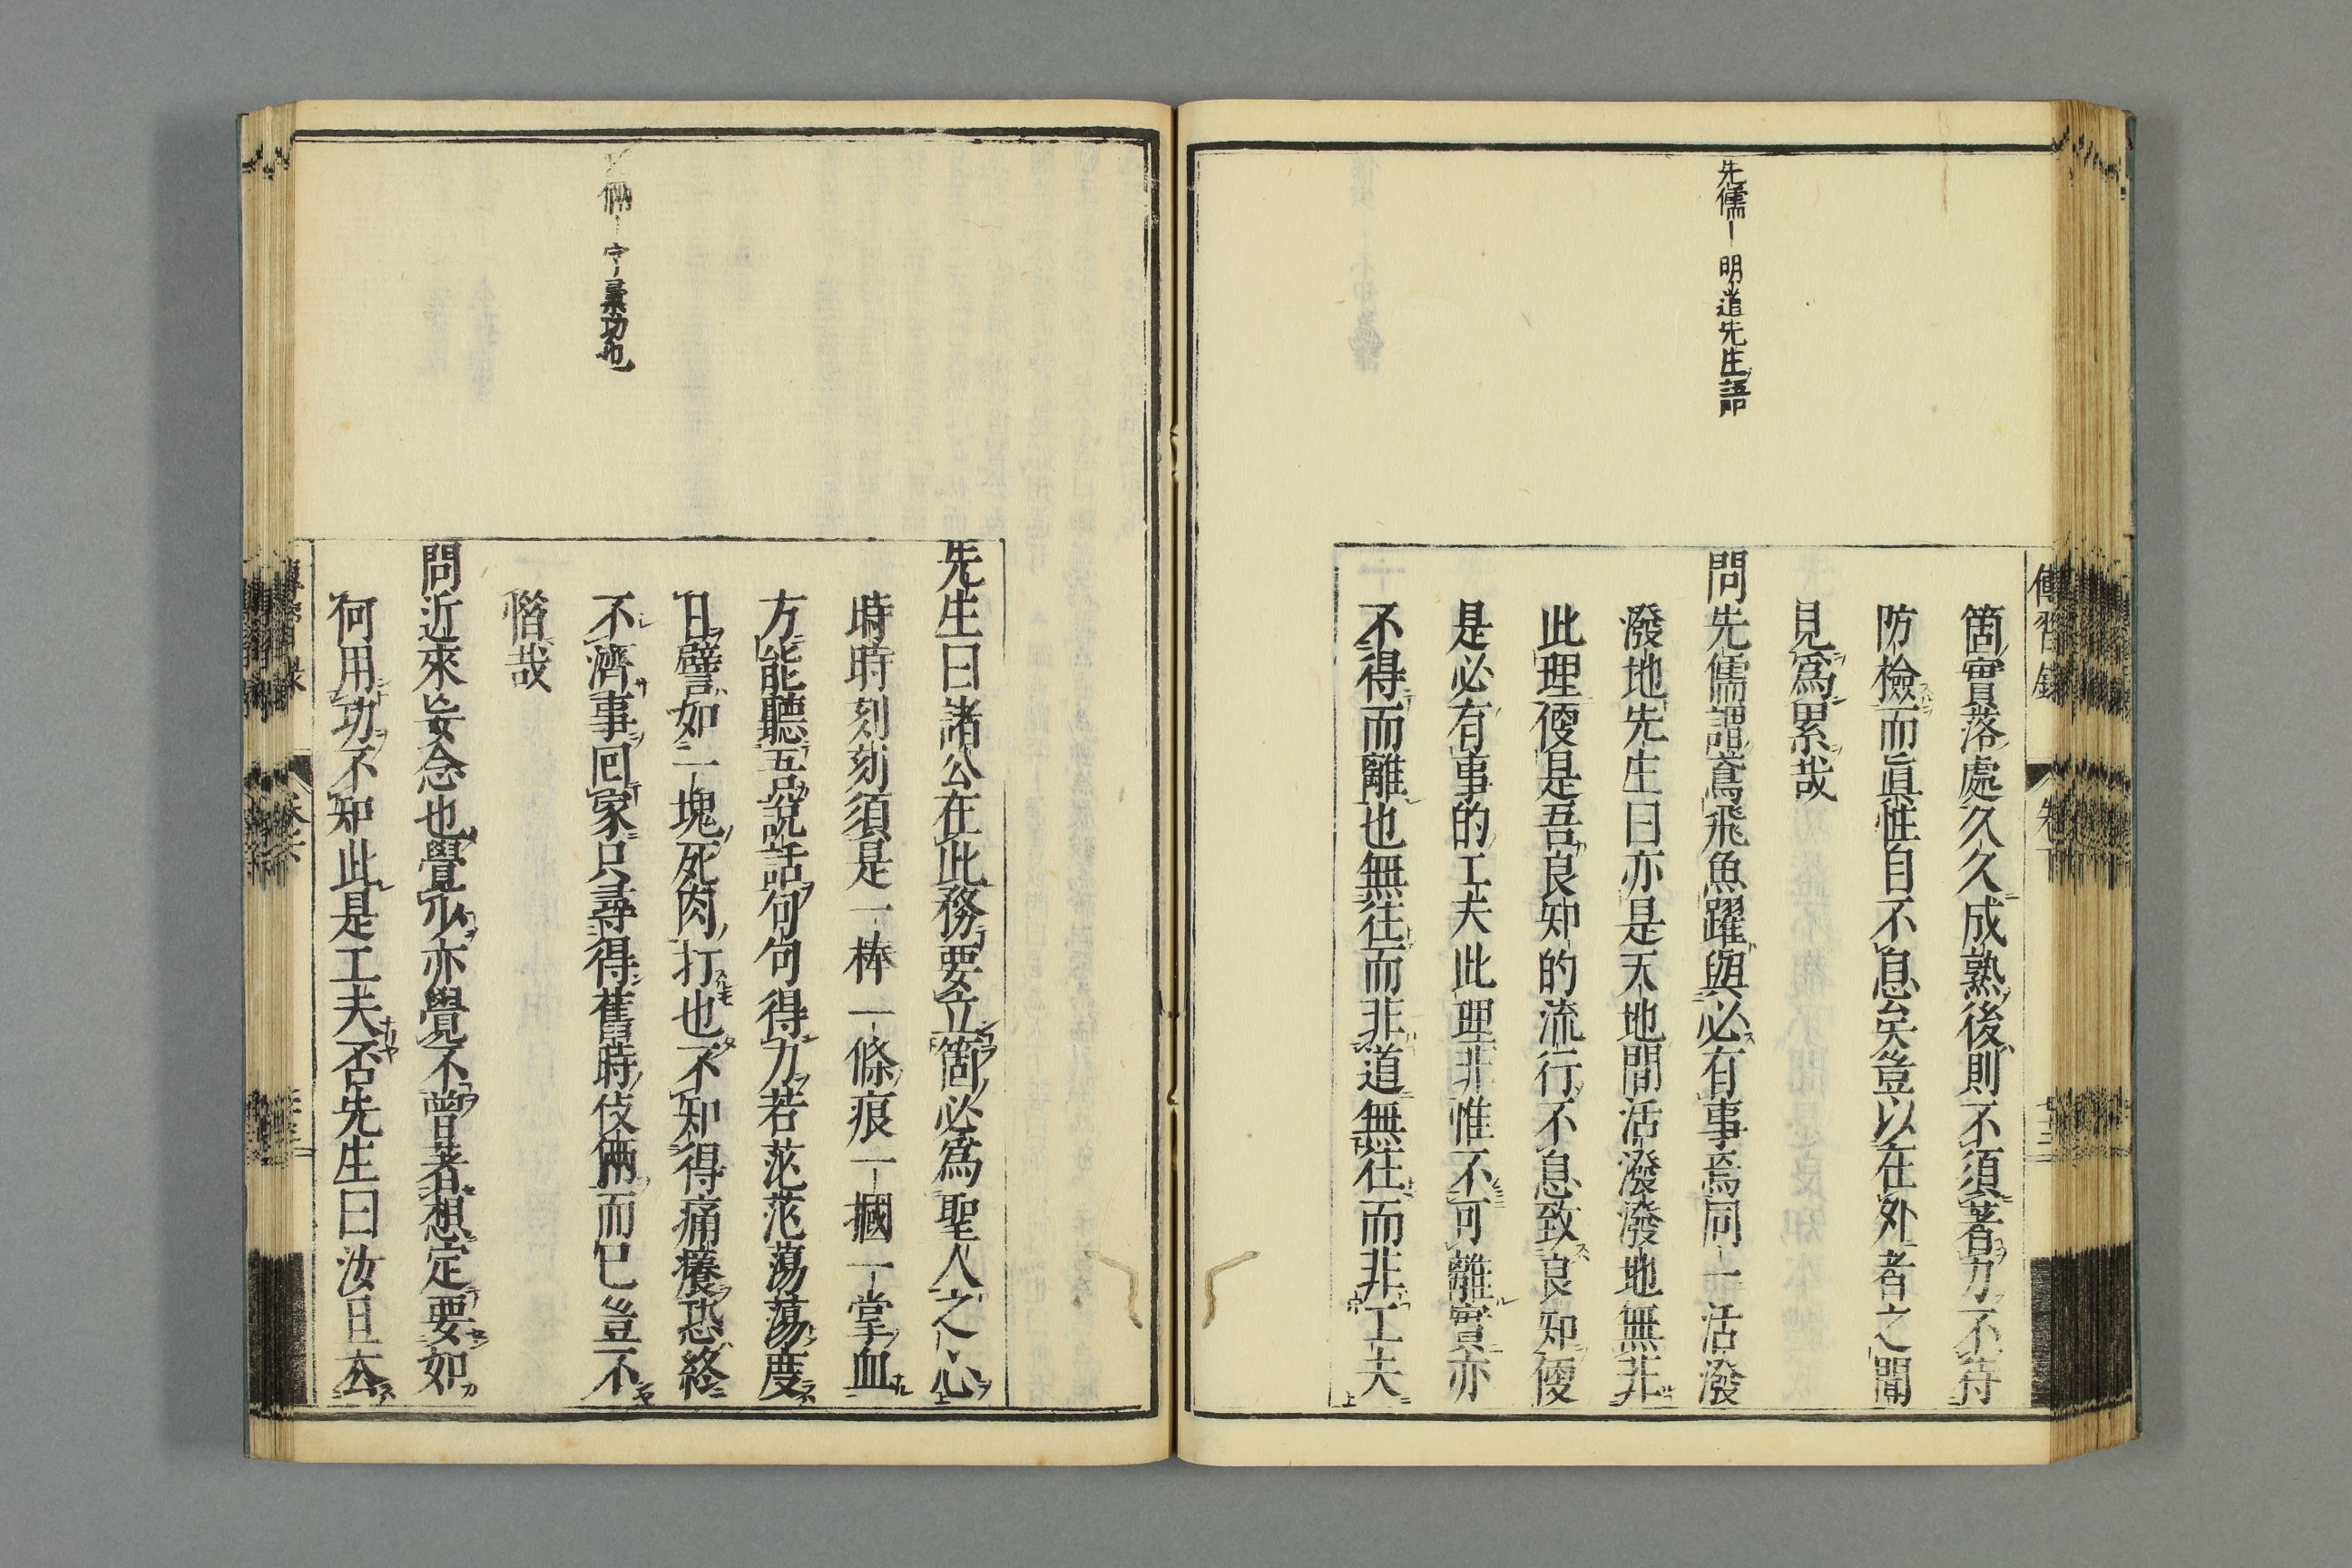 傳習錄
卷下
先儒｜明道先生語
箇實落處久久成熟後則不須著力不待
防檢而眞性自不息矣豈以在外者之聞
見爲累哉
問先儒謂鳶飛魚躍與必有事焉同一活潑
潑地先生曰亦是天地間活潑潑地無非
此理便是吾良知的流行不息致良知便
是必有事的工夫此理非惟不可離實亦
不得而離也無往而非道無往而非工夫
先生曰諸公在此務要立箇必爲聖人之心
時時刻刻須是一棒一條痕一摑一掌血
方能聽吾說話句句得力若茫茫蕩蕩度
日譬如一塊死肉打也不知得痛癢恐終
不濟事回家只尋得舊時伎倆而已豈不
惜哉
問近來妄念也覺少亦覺不曾著想定要如
何用功不知此是工夫否先生曰汝且去